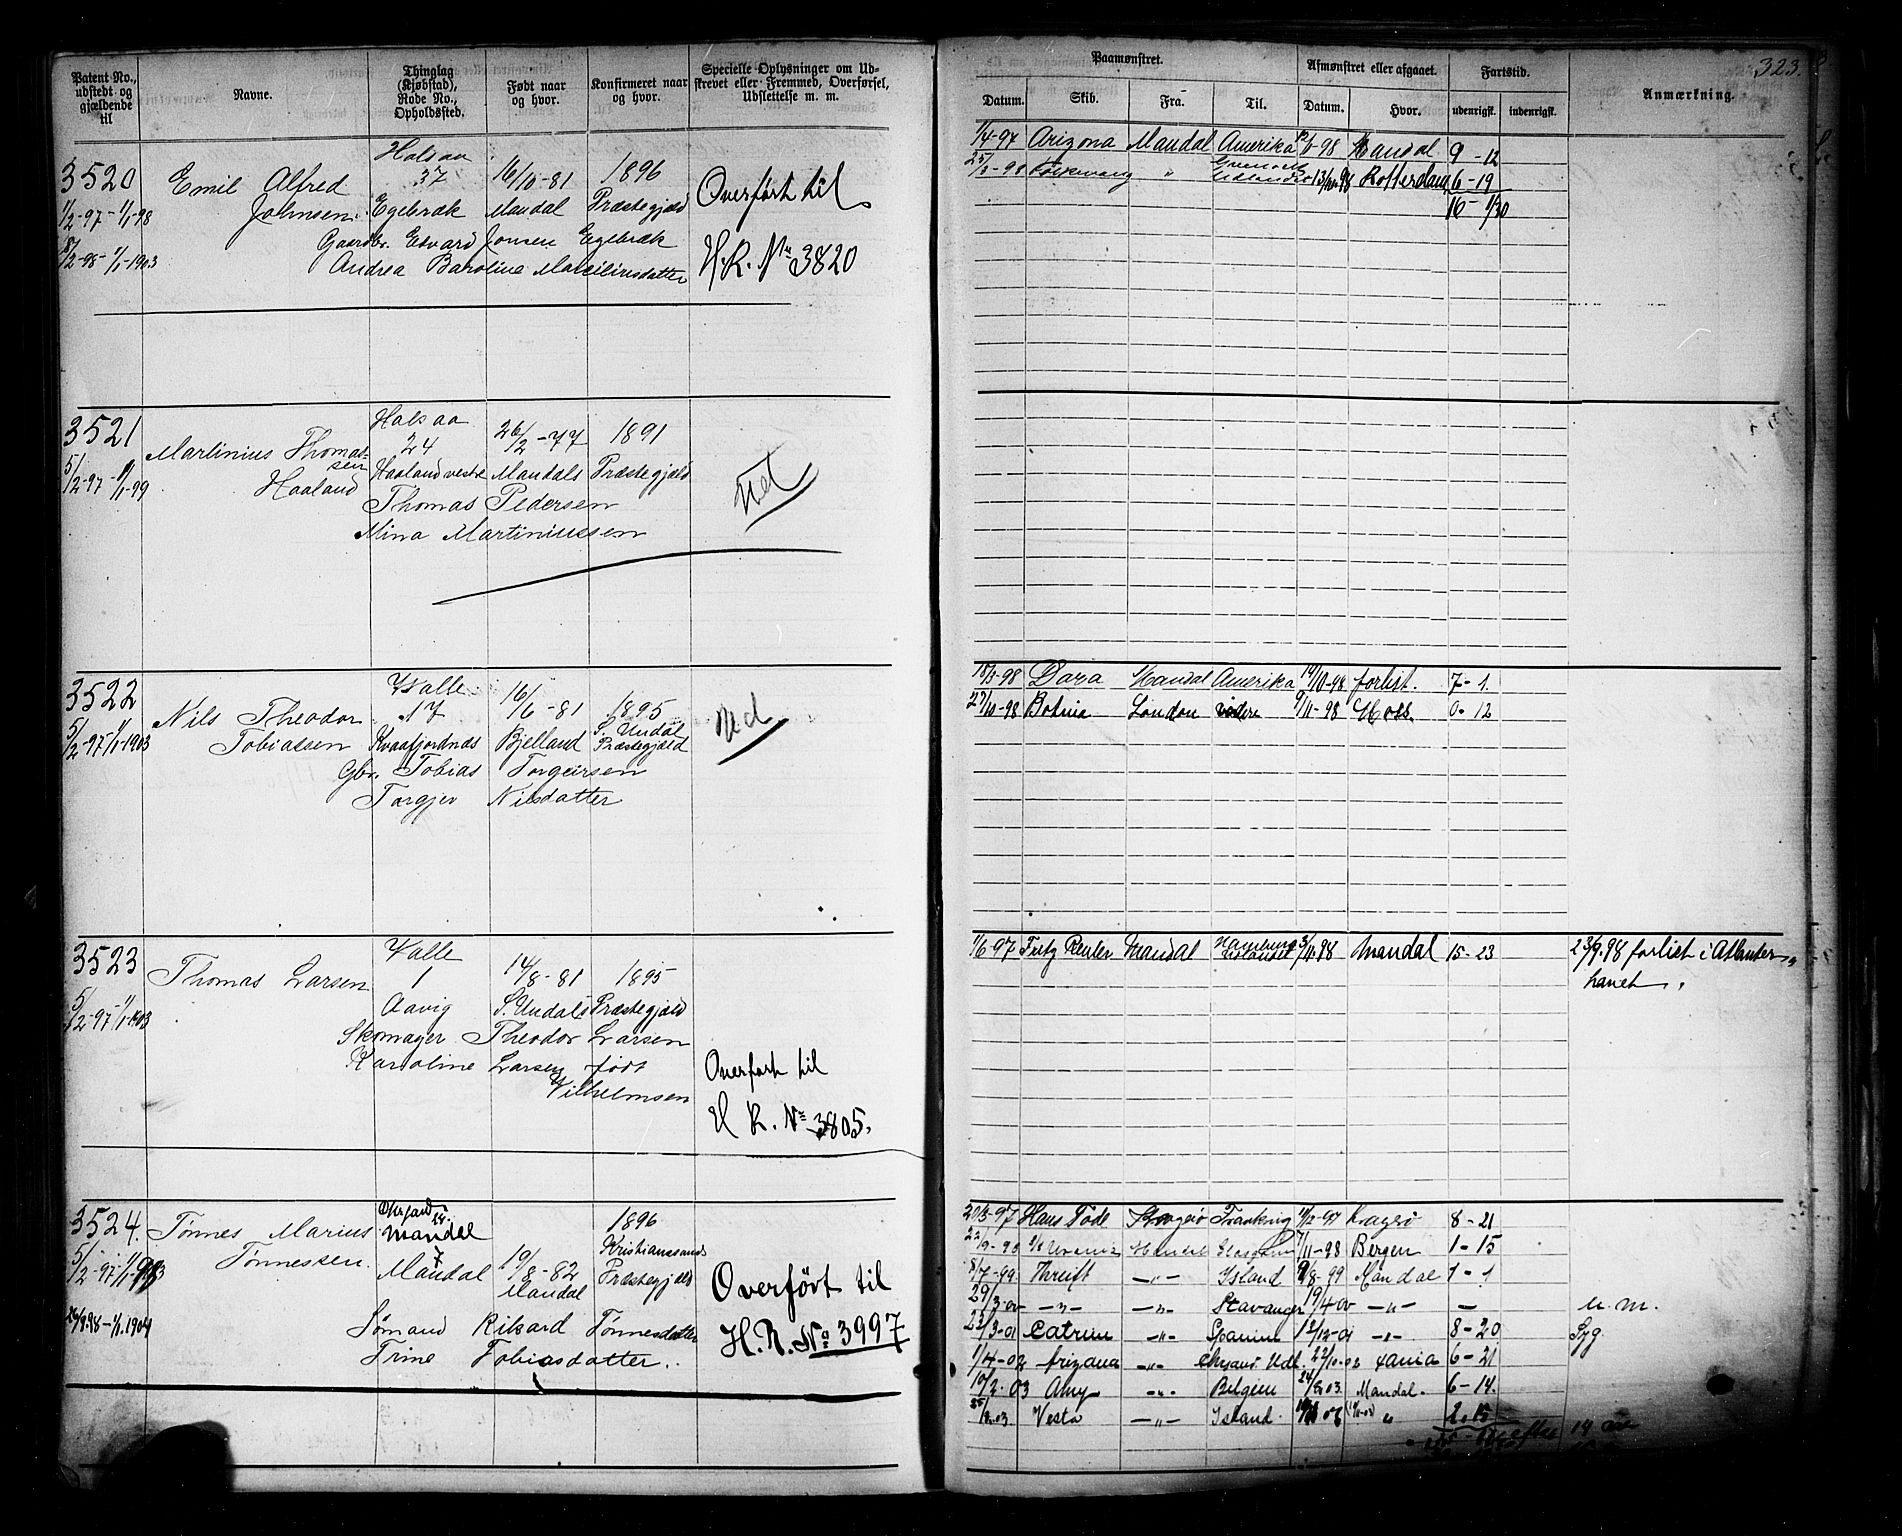 Patent No., udstedt og gjældende til
Navne.
Thinglag (Kjøbstad), Rode No., Opholdssted.
Født naar og hvor.
Konfirmeret naar og hvor.
Specielle Oplysninger om Udstrevet eller Fremmed, Overførsel, Udslettelse m. m.
3520
Halsaa
Emil Alfred 37 16/10-81 1896
Johnsen. Egebræk Mandal Præstegjæld
1/2-97-1/1-98
Gaardbr. Edvard Jonsen Egebræk
8/2-98-1/1-1903
Overført til
H.R. No 3820
3521
Halsaa
24 26/2-77 1891
Martinius Thomassen
Haaland
Haaland vestre Mandals Præstegjæld
5/2-97-1/1-99
Thomas Pedersen
Mina Martiniussen
Ud
3522
Valle
17 16/6-81 1895
Nils Theodor
Tobiassen Kvaafjordnæs Bjelland S. Undal Præstegjæld
5/2-97-1/1-1903
Gbr. Tobias Torgeirsen
Torgjer Nilsdatter
Ud
3523
Valle
Thomas Larsen 1 14/8-81 1895
5/2-97-1/1-1903
Aavig S. Undals Præstegjæld
Skomager Theodor Larsen
Karoline Larsen født
Vilhelmsen
Overført til
H R. No 3805.
3524.
Tønnes Marius
Tønnessen.
Mandal
7
Mandal 19/8-82 Mandal
1896
Kristianssands
Præstegjæld
Sømand Rikard Tønnesdatter
Trine Tobiasdatter.
Overført til
H.R. No 3997
323.
Paamønstret.
Afmønstret eller afgaaet.
Fartstid.
Anmærkning.
Datum. Skib. Fra. Til. Datum. Hvor. udenrigsk. indenrigsk.
1/4-97 Arizona Mandal Amerika -98 Mandal 9-12
-98 " 13/10-98 Rotterdam 6-19
16-1/30
-98 Dara Mandal Amerika 14/10-98 forlist. 7-1.
27/10-98 Botnia London videre 9/11-98 Moss. 0-12
1/6-97 Fritz Reuter Mandal Hamburg 3/11.98 Mandal 15-23 23/9.98 forliet i Atlanter-
havet.
20/3-97 Hans Tode Kragerø Frankrig 11/12-97 Kragerø 8-21
22/9-98 Urania Mandal 7/11-98 Bergen 1-15
8/7-99. Thrift -"- Island 9/8-99 Mandal 1-1
29/3-00 -"- -"- Stavanger 19/4-00 -"- - u. m.
22/3-01 Catrine -"- Spanien 12/12-01 -"- 8-20 Syg.
1/4-02 Arizona -"- Udl. 22/10-02 Xania 6-21
10/2-03 Amy -"- Belgien 24/8 03. Mandal. 6-14.
03. Vesta -"- Island. " 2.15